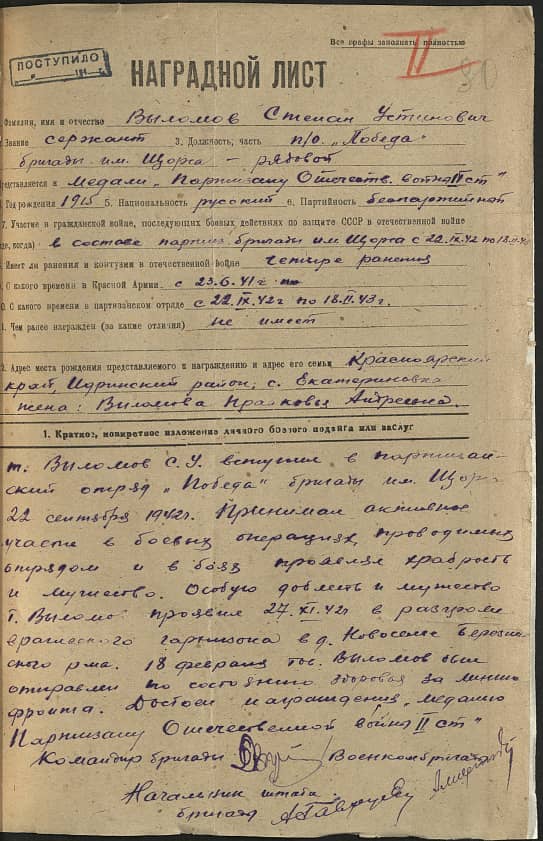 Все графы заполнять полностью
ПОСТУПИЛО
II
80
НАГРАДНОЙ ЛИСТ
Фамилия, имя и отчество Выломов Степан Устинович
Звание сержант 3. Должность, часть п/о „Победа"
бригады им. Щорса – рядовой
редставляется к медали „Партизану Отечеств. войны II ст"
Год рождения 1915 5. Национальность русский 6. Партийность беспартийный
7. Участие в гражданской войне, последующих боевых действиях по защите СССР в отечественной войне
где, когда) в составе партиз. бригады им Щорса с 22.IX.42 по 18.II.43
Имеет ли ранения и контузии в отечественной войне четыре ранения
С какого времени в Красной Армии с 23.6.41г
0. С какого времени в партизанском отряде с 22.IX.42г по 18.II.43г.
1. Чем ранее награжден (за какие отличия) не имеет
2. Адрес места рождения представляемого к награждению и адрес его семьи Красноярский
край, Идринский район, с. Екатериновка
жена: Выломова Прасковья Андреевна.
1. Краткое, конкретное изложение личного боевого подвига или заслуг
т. Выломов С. У. вступил в партизан-
ский отряд „Победа" бригады им. Щорса
22 сентября 1942г. Принимал активное
участие в боевых операциях, проводимых
отрядом и в боях проявлял храбрость
и мужество. Особую доблесть и мужество
т. Выломов проявил 27.XI.42г в разгроме
вражеского гарнизона в д. Новоселье Березин-
ского р-на. 18 февраля тов. Выломов был
отправлен по состоянию здоровья за линию
фронта. Достоин награждения „медалью
Партизану Отечественной войны II ст"
Командир бригады Военком бригады
Начальник штаба
бригады